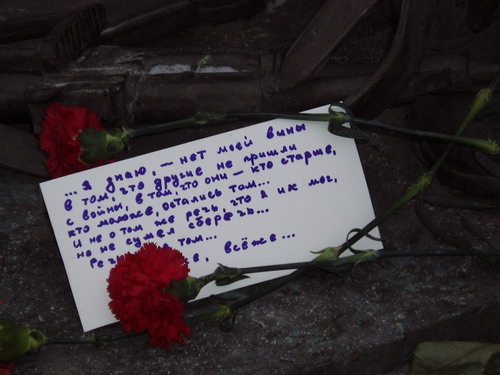 ... Я знаю, — нет моей вины
в том, что другие не пришли
с войны, в том, что они — кто старше,
кто моложе, остались там...
И не о том же речь, что я их мог,
но не сумел сберечь...
Речь не о том...
, всё же...